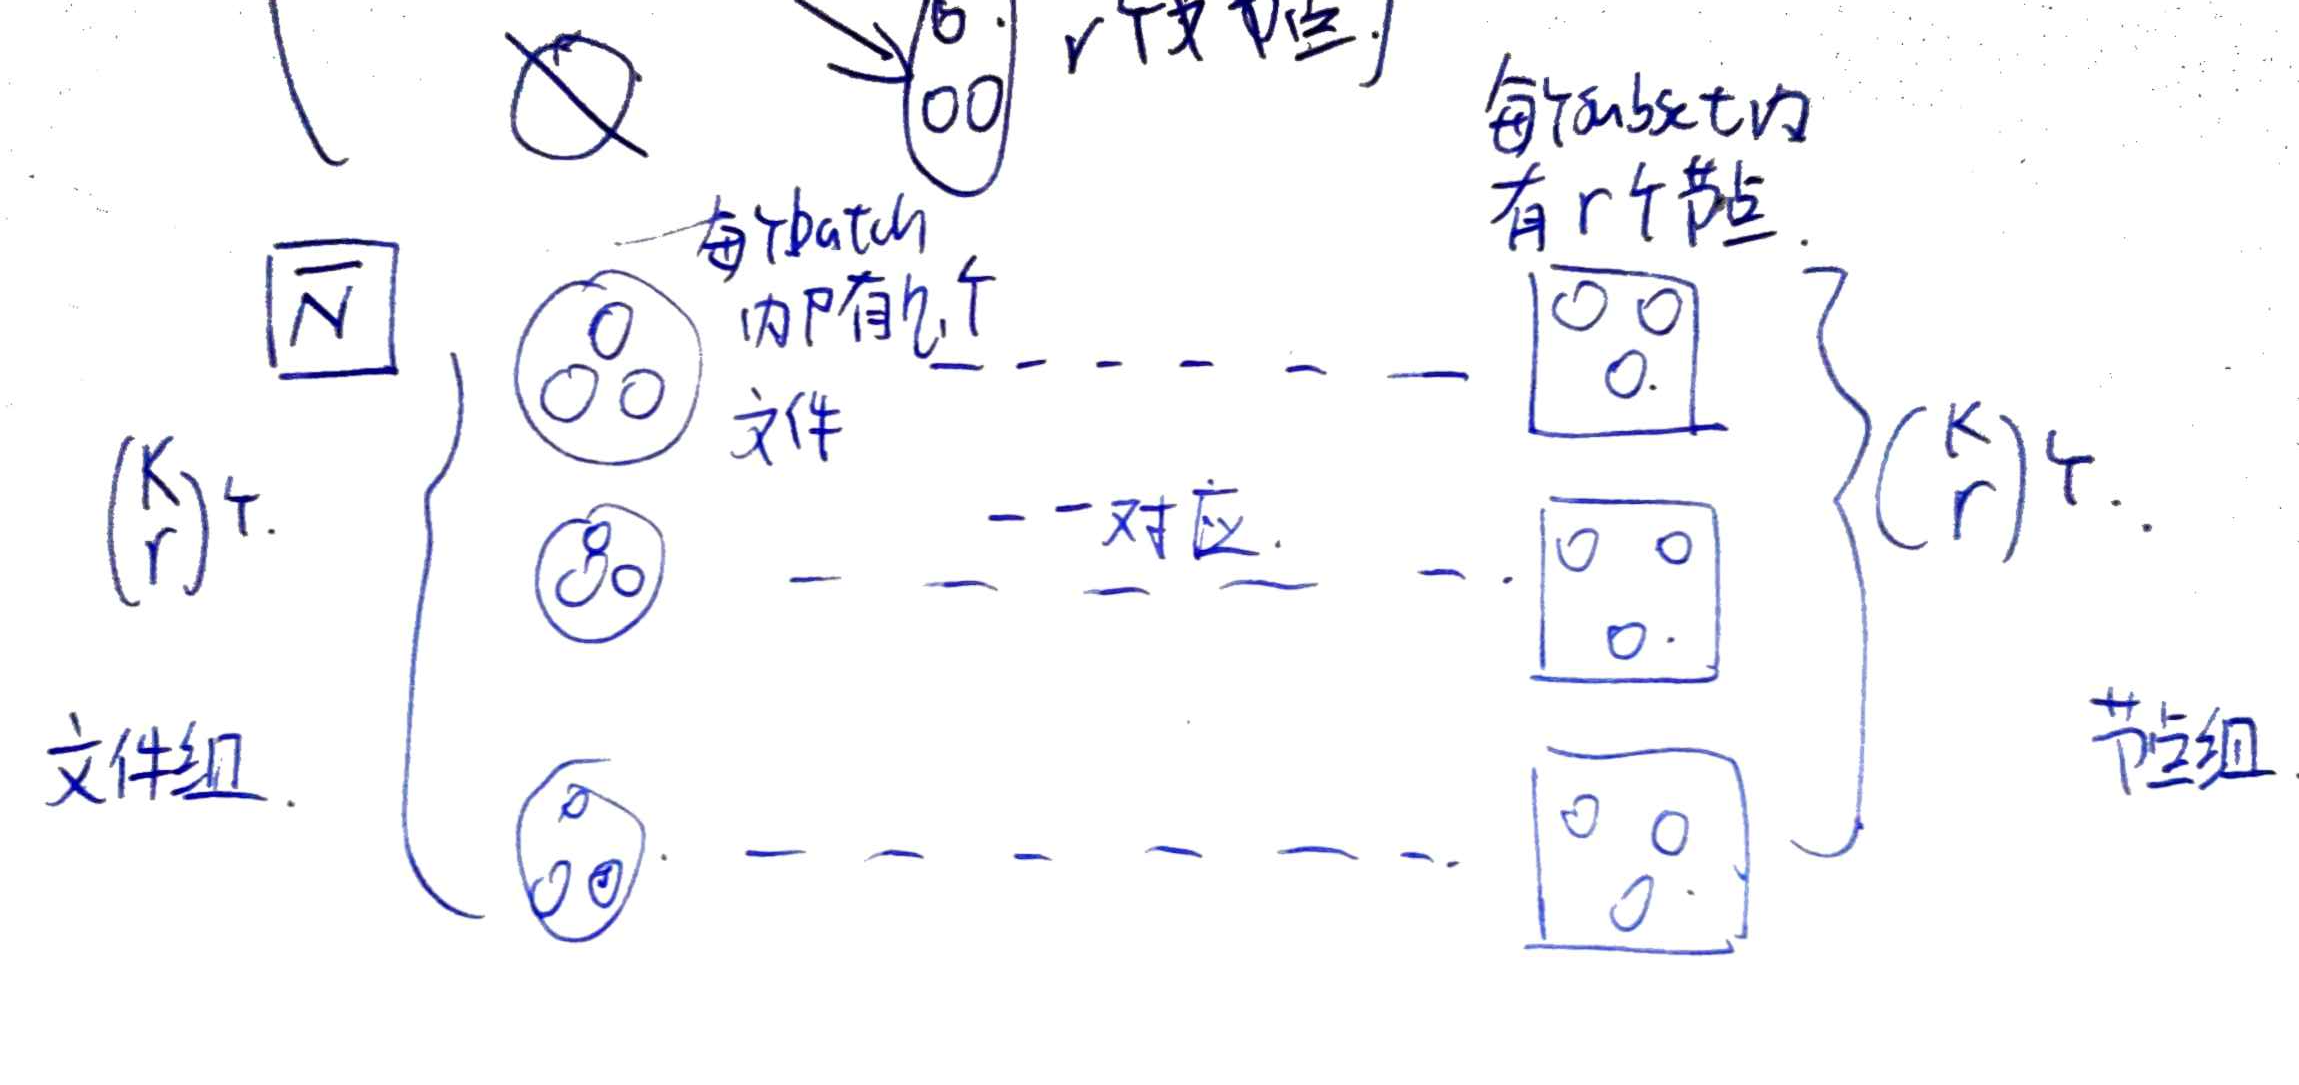 r个
每个subset内
有r个节点.
每个batch
内P有η1个
文件
N̅
(K r)个.
一一对应.
(K r)个.
文件组.
节点组.